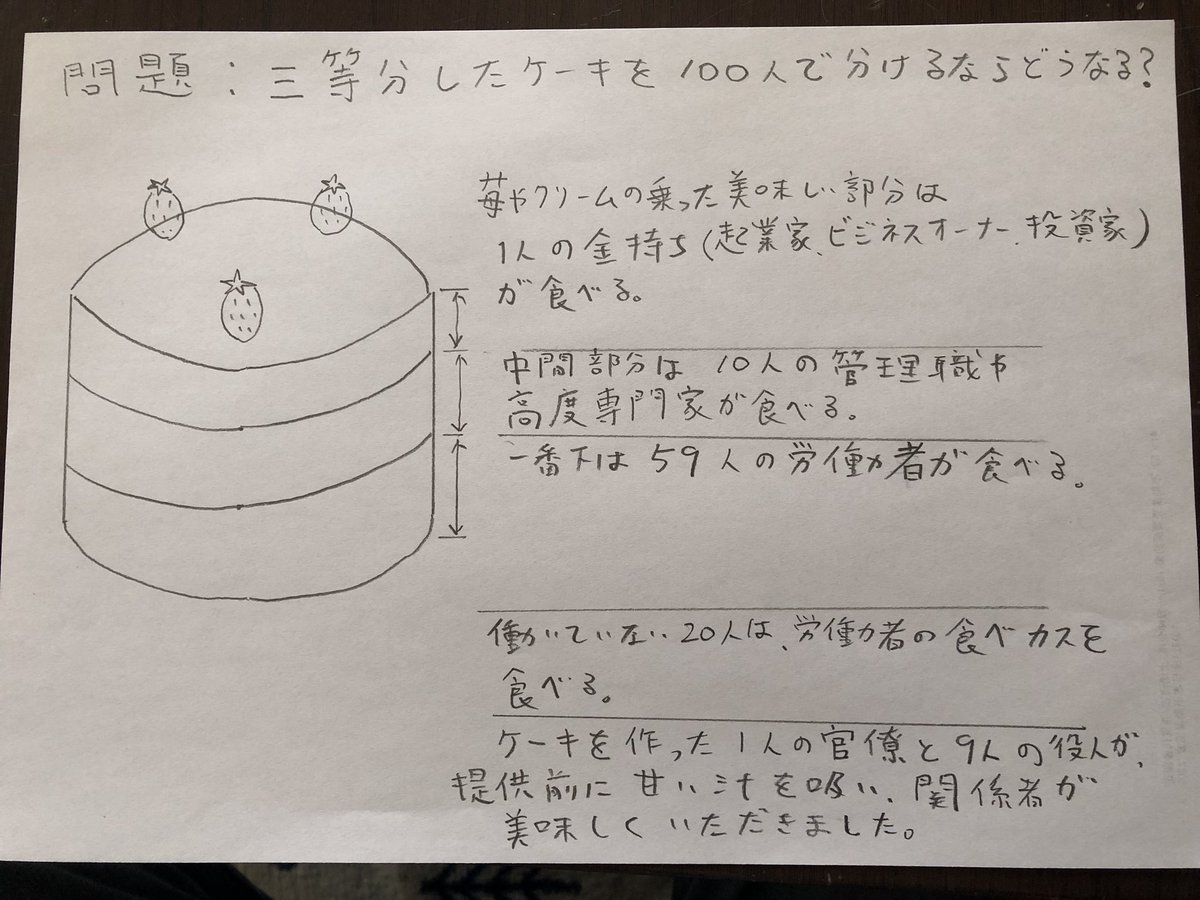 問題：三等分したケーキを100人で分けるならどうなる?
苺やクリームの乗った美味しい部分は
1人の金持ち(起業家、ビジネスオーナー、投資家)
が食べる。
中間部分は10人の管理職や
高度専門家が食べる。
一番下は59人の労働力者が食べる。
働いていない20人は、労働力者の食べカスを
食べる。
ケーキを作った1人の官僚と9人の役人が、
提供前に甘い汁を吸い、関係者が
美味しくいただきました。